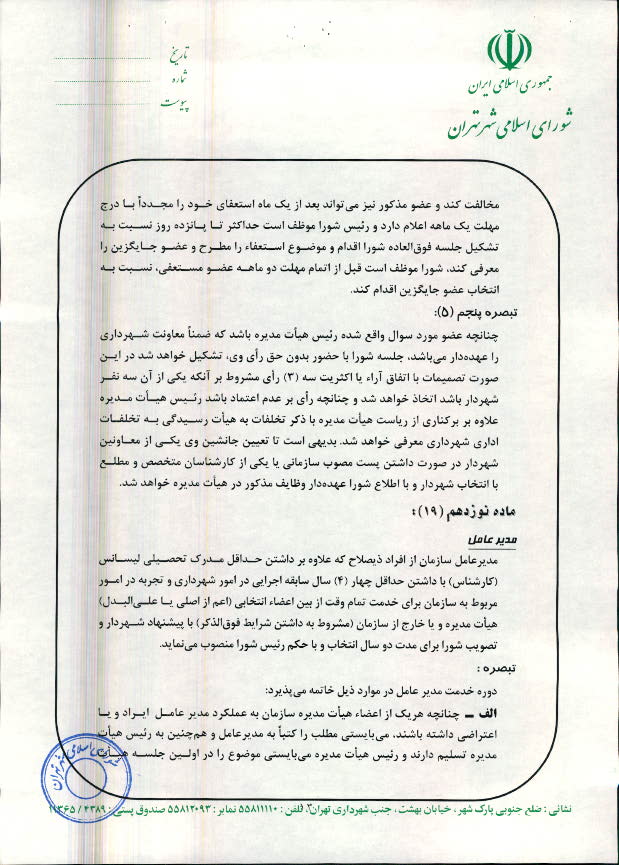 جمهوری اسلامی ایران
شورای اسلامی شهر تهران
تاریخ
شماره
پیوست
مخالفت کند و عضو مذکور نیز می‌تواند بعد از یک ماه استعفای خود را مجدداً با درج
مهلت یک ماهه اعلام دارد و رئیس شورا موظف است حداکثر تا پانزده روز نسبت به
تشکیل جلسه فوق‌العاده شورا اقدام و موضوع استعفاء را مطرح و عضو جایگزین را
معرفی کند، شورا موظف است قبل از اتمام مهلت دو ماهه عضو مستعفی، نسبت به
انتخاب عضو جایگزین اقدام کند.
تبصره پنجم (۵):
چنانچه عضو مورد سوال واقع شده رئیس هیأت مدیره باشد که ضمناً معاونت شهرداری
را عهده‌دار می‌باشد، جلسه شورا با حضور بدون حق رأی وی، تشکیل خواهد شد در این
صورت تصمیمات با اتفاق آراء یا اکثریت سه (۳) رأی مشروط بر آنکه یکی از آن سه نفر
شهردار باشد اتخاذ خواهد شد و چنانچه رأی بر عدم اعتماد باشد رئیس هیأت مدیره
علاوه بر برکناری از ریاست هیأت مدیره با ذکر تخلفات به هیأت رسیدگی به تخلفات
اداری شهرداری معرفی خواهد شد. بدیهی است تا تعیین جانشین وی یکی از معاونین
شهردار در صورت داشتن پست مصوب سازمانی یا یکی از کارشناسان متخصص و مطلع
با انتخاب شهردار و با اطلاع شورا عهده‌دار وظایف مذکور در هیأت مدیره خواهد شد.
ماده نوزدهم (۱۹):
مدیر عامل
مدیرعامل سازمان از افراد ذیصلاح که علاوه بر داشتن حداقل مدرک تحصیلی لیسانس
(کارشناس) با داشتن حداقل چهار (۴) سال سابقه اجرایی در امور شهرداری و تجربه در امور
مربوط به سازمان برای خدمت تمام وقت از بین اعضاء انتخابی (اعم از اصلی یا علی‌البدل)
هیأت مدیره و یا خارج از سازمان (مشروط به داشتن شرایط فوق‌الذکر) با پیشنهاد شهردار و
تصویب شورا برای مدت دو سال انتخاب و با حکم رئیس شورا منصوب می‌نماید.
تبصره :
دوره خدمت مدیر عامل در موارد ذیل خاتمه می‌پذیرد:
الف – چنانچه هریک از اعضاء هیأت مدیره سازمان به عملکرد مدیر عامل ایراد و یا
اعتراضی داشته باشند، می‌بایستی مطلب را کتباً به مدیرعامل و هم‌چنین به رئیس هیأت
مدیره تسلیم دارند و رئیس هیأت مدیره می‌بایستی موضوع را در اولین جلسه هیأت
شورای اسلامی شهر تهران
نشانی : ضلع جنوبی پارک شهر ، خیابان بهشت، جنب شهرداری تهران تلفن : ۵۵۸۱۱۱۱۰ نمابر : ۵۵۸۱۲۰۹۳ صندوق پستی : ۴۳۸۹ / ۱۱۳۶۵